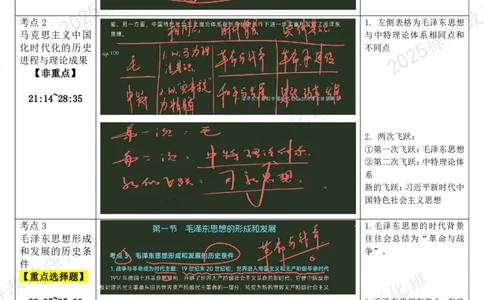 考点 2
马克思主义中国
化时代化的历史
进程与理论成果
【非重点】
21:14~28:35
想。另一方面，中国特色社会主义理论体系在新的历史条件下进一步丰富和发展了毛泽东
思想。
相同点
时代主题
毛
1. 以马为理
革命与战争
中特
2. 以
为精髓
和平与发展
第一次：毛
第二次：中特理论体系
新的飞跃：习新思想
1. 左侧表格为毛泽东思想
与中特理论体系相同点和
不同点
2. 两次飞跃：
①第一次飞跃：毛泽东思想
②第二次飞跃：中特理论体
系
新的飞跃：习近平新时代中
国特色社会主义思想
考点 3
毛泽东思想形成
和发展的历史条
件
【重点选择题】
第一节 毛泽东思想的形成和发展
革命与战争
考点 3 毛泽东思想形成和发展的历史条件
1. 战争与革命成为时代主题：19 世纪末 20 世纪初，世界进入帝国主义和无产阶级革命时代
1. 毛泽东思想的时代背景
往往会总结为“革命与战
争”。